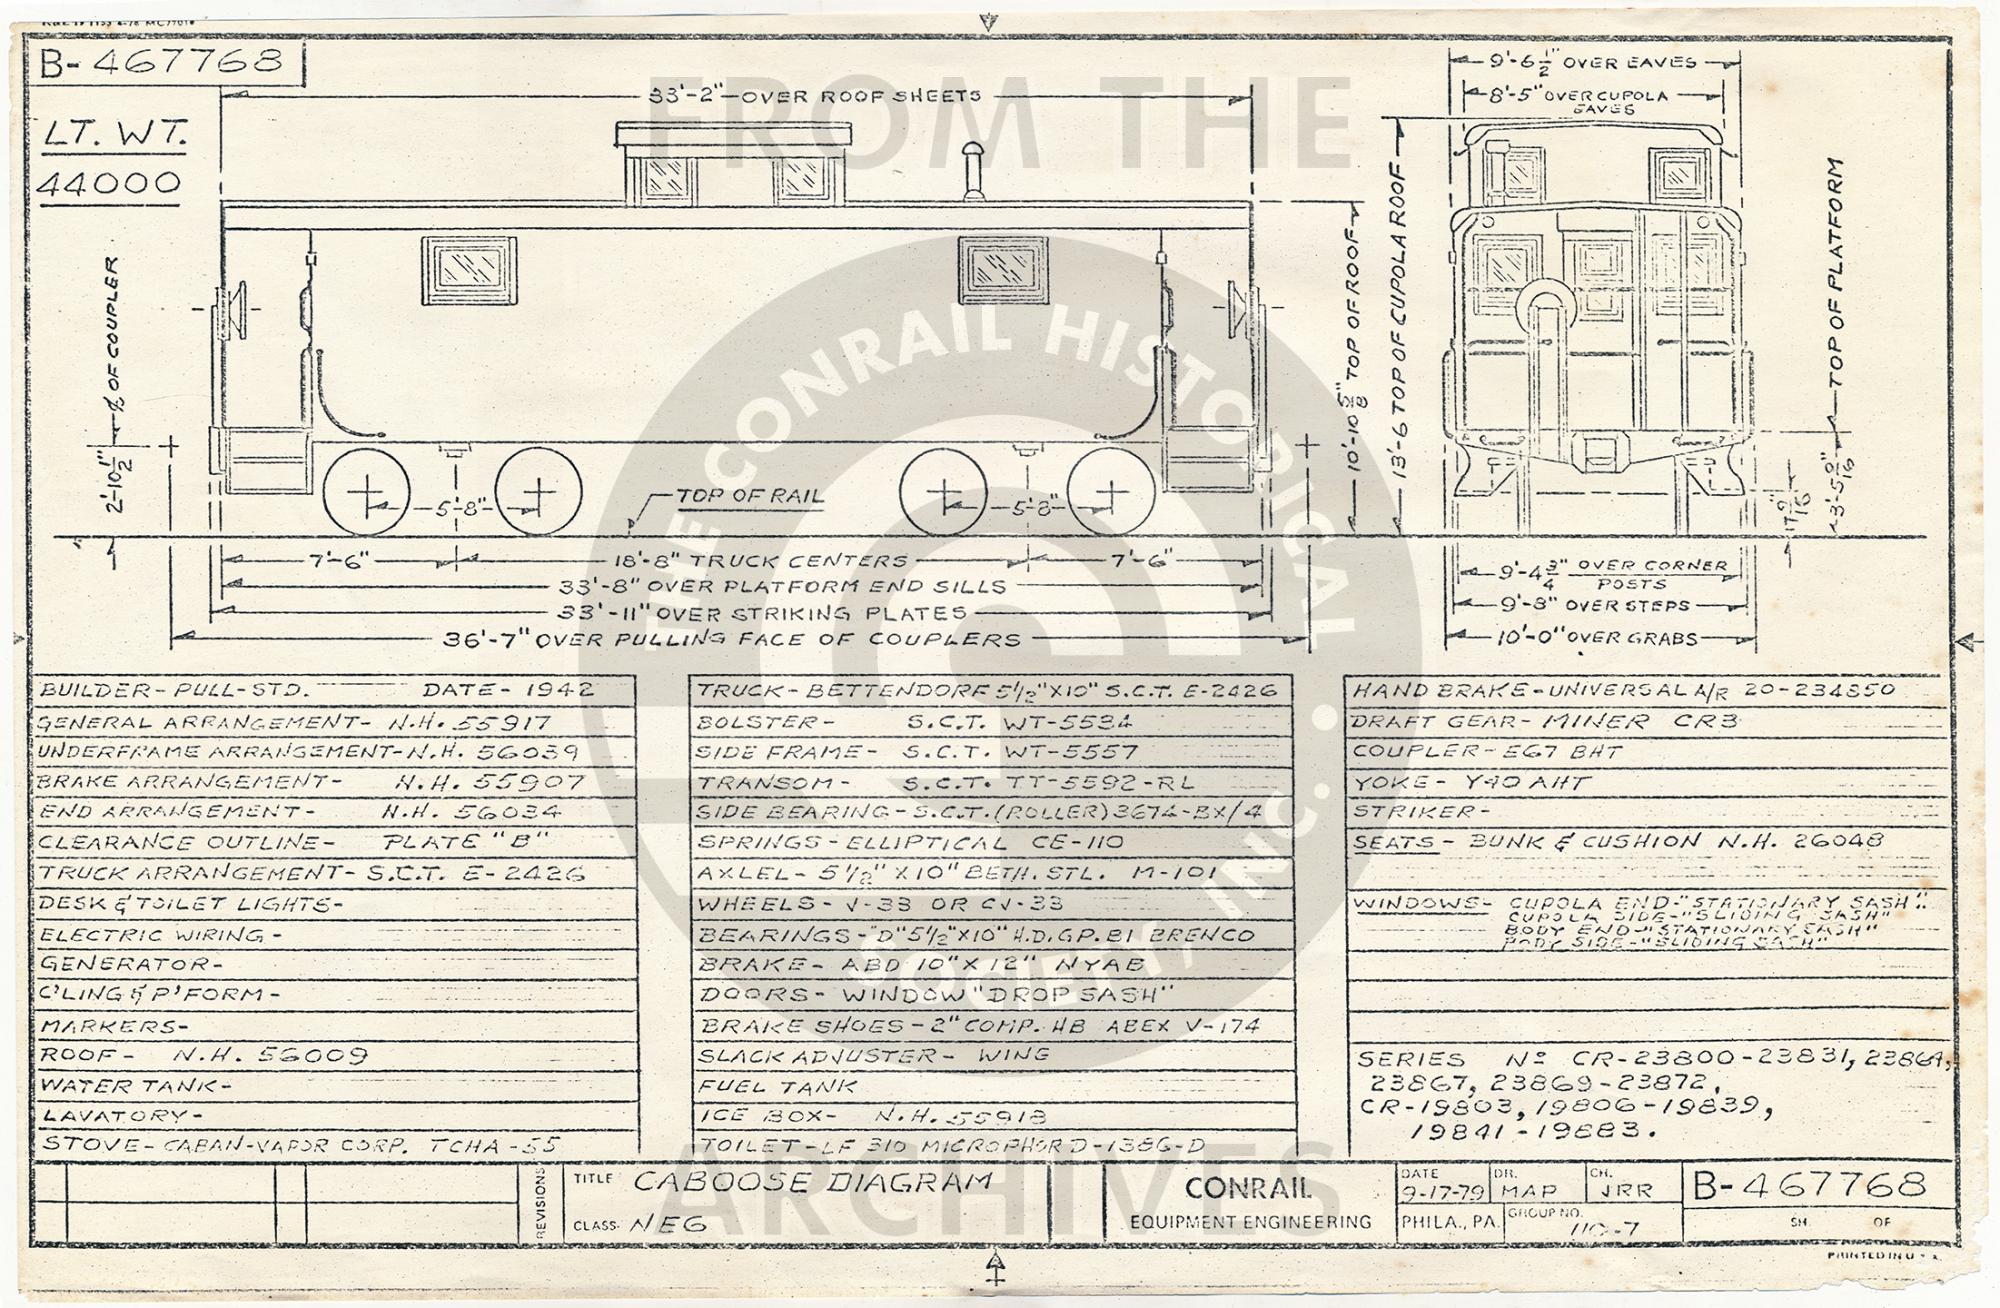 B-467768
LT. WT.
44000
33'-2" OVER ROOF SHEETS
9'-6 1/2" OVER EAVES
8'-5" OVER CUPOLA
EAVES
FROM THE
2'-10 1/2" ℄ OF COUPLER
10'-10 5/8" TOP OF ROOF
13'-6 TOP OF CUPOLA ROOF
TOP OF PLATFORM
3'-5 9/16"
5'-8"
TOP OF RAIL
5'-8"
7'-6"
18'-8" TRUCK CENTERS
7'-6"
33'-8" OVER PLATFORM END SILLS
33'-11" OVER STRIKING PLATES
36'-7" OVER PULLING FACE OF COUPLERS
9'-4 3/4" OVER CORNER
POSTS
9'-8" OVER STEPS
10'-0" OVER GRABS
THE CONRAIL HISTORICAL
SOCIETY, INC.
BUILDER- PULL-STD. DATE- 1942
GENERAL ARRANGEMENT- N.H. 55917
UNDERFRAME ARRANGEMENT- N.H. 56039
BRAKE ARRANGEMENT- N.H. 55907
END ARRANGEMENT- N.H. 56034
CLEARANCE OUTLINE- PLATE "B"
TRUCK ARRANGEMENT- S.C.T. E-2426
DESK & TOILET LIGHTS-
ELECTRIC WIRING-
GENERATOR-
C'LING & P'FORM-
MARKERS-
ROOF- N.H. 56009
WATER TANK-
LAVATORY-
STOVE- CABAN-VAPOR CORP. TCHA-55
TRUCK- BETTENDORF 5 1/2" X 10" S.C.T. E-2426
BOLSTER- S.C.T. WT-5534
SIDE FRAME- S.C.T. WT-5557
TRANSOM- S.C.T. TT-5592-RL
SIDE BEARING- S.C.T. (ROLLER) 3674-BX/4
SPRINGS- ELLIPTICAL CE-110
AXLEL- 5 1/2" X 10" BETH. STL. M-101
WHEELS- V-33 OR CV-33
BEARINGS- "D" 5 1/2" X 10" H.D. GP. B1 BRENCO
BRAKE- ABD 10" X 12" NYAB
DOORS- WINDOW "DROP SASH"
BRAKE SHOES- 2" COMP. HB ABEX V-174
SLACK ADJUSTER- WING
FUEL TANK
ICE BOX- N.H. 55918
TOILET- LF 310 MICROPHOR D-1386-D
HAND BRAKE- UNIVERSAL A/R 20-234850
DRAFT GEAR- MINER CR3
COUPLER- E67 BHT
YOKE- Y40 AHT
STRIKER-
SEATS- BUNK & CUSHION N.H. 26048
WINDOWS- CUPOLA END-"STATIONARY SASH".
CUPOLA SIDE-"SLIDING SASH"
BODY END-"STATIONARY SASH"
BODY SIDE-"SLIDING SASH"
SERIES Nº CR-23800-23831, 23864,
23867, 23869-23872,
CR-19803, 19806-19839,
19841-19883.
ARCHIVES
REVISIONS
TITLE CABOOSE DIAGRAM
CLASS- NE6
CONRAIL
EQUIPMENT ENGINEERING
DATE 9-17-79
DR. MAP
CH. JRR
PHILA., PA.
GROUP NO. 110-7
B-467768
SH. OF